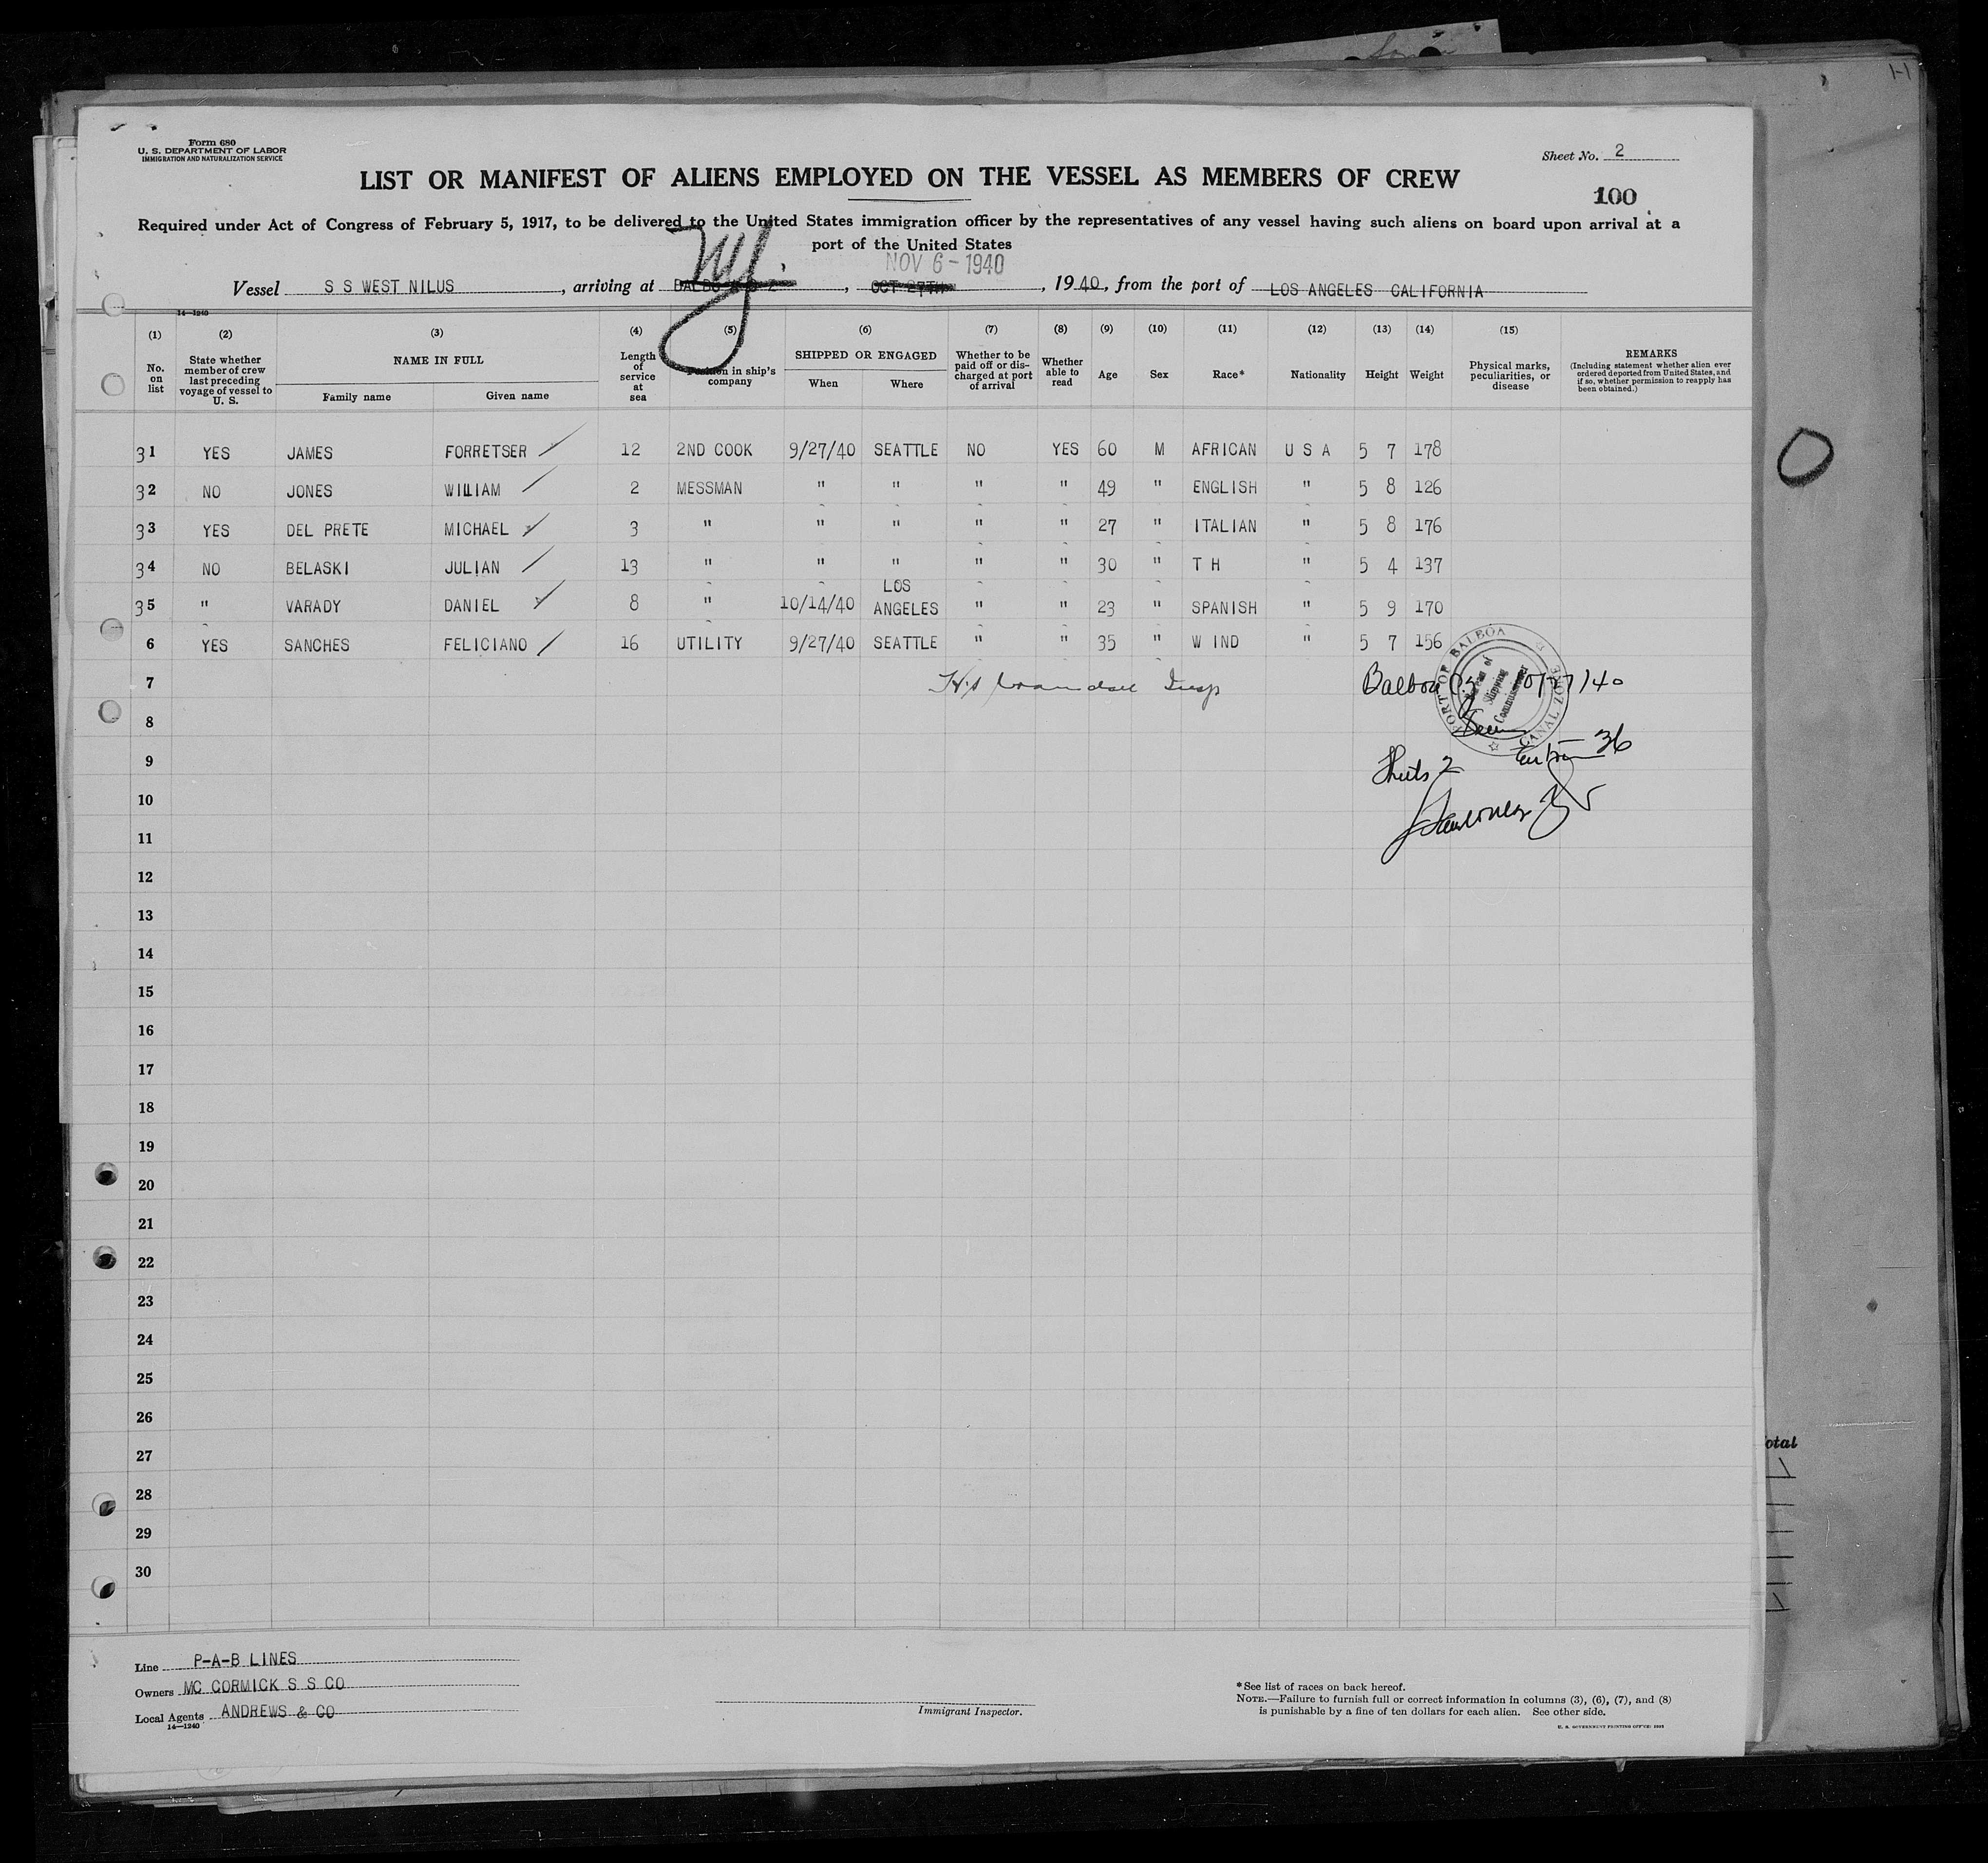 Form 680
U. S. DEPARTMENT OF LABOR
IMMIGRATION AND NATURALIZATION SERVICE
Sheet No. 2
LIST OR MANIFEST OF ALIENS EMPLOYED ON THE VESSEL AS MEMBERS OF CREW
100
Required under Act of Congress of February 5, 1917, to be delivered to the United States immigration officer by the representatives of any vessel having such aliens on board upon arrival at a
port of the United States
NOV 6 - 1940
Vessel S S WEST NILUS, arriving at BALBOA C Z, OCT 27TH, 1940, from the port of LOS ANGELES CALIFORNIA
14—1240
(1) (2) (3) (4) (5) (6) (7) (8) (9) (10) (11) (12) (13) (14) (15)
No. on list
State whether member of crew last preceding voyage of vessel to U. S.
NAME IN FULL
Family name
Given name
Length of service at sea
Position in ship's company
SHIPPED OR ENGAGED
When
Where
Whether to be paid off or discharged at port of arrival
Whether able to read
Age
Sex
Race*
Nationality
Height
Weight
Physical marks, peculiarities, or disease
REMARKS
(Including statement whether alien ever ordered deported from United States, and if so, whether permission to reapply has been obtained.)
31 YES JAMES FORRETSER 12 2ND COOK 9/27/40 SEATTLE NO YES 60 M AFRICAN U S A 5 7 178
32 NO JONES WILLIAM 2 MESSMAN " " " " 49 " ENGLISH " 5 8 126
33 YES DEL PRETE MICHAEL 3 " " " " " 27 " ITALIAN " 5 8 176
34 NO BELASKI JULIAN 13 " " " " " 30 " T H " 5 4 137
35 " VARADY DANIEL 8 " 10/14/40 LOS ANGELES " " 23 " SPANISH " 5 9 170
6 YES SANCHES FELICIANO 16 UTILITY 9/27/40 SEATTLE " " 35 " W IND " 5 7 156
7 Insp Balboa CZ 10/27/40
PORT OF BALBOA
CANAL ZONE
Shipping
Commissioner
8
9 Sheets 2 36
10
11
12
13
14
15
16
17
18
19
20
21
22
23
24
25
26
27
28
29
30
otal
Line P-A-B LINES
Owners MC CORMICK S S CO
Local Agents ANDREWS & CO
14—1240
Immigrant Inspector.
*See list of races on back hereof.
NOTE.—Failure to furnish full or correct information in columns (3), (6), (7), and (8)
is punishable by a fine of ten dollars for each alien. See other side.